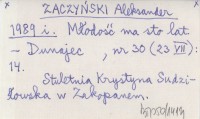 ZACZYŃSKI Aleksander
1989 i. Młodość ma sto lat
- Dunajec, nr 30 (23 VII):
14.
Stuletnia Krystyna Sudzi-
łowska w Zakopanem.